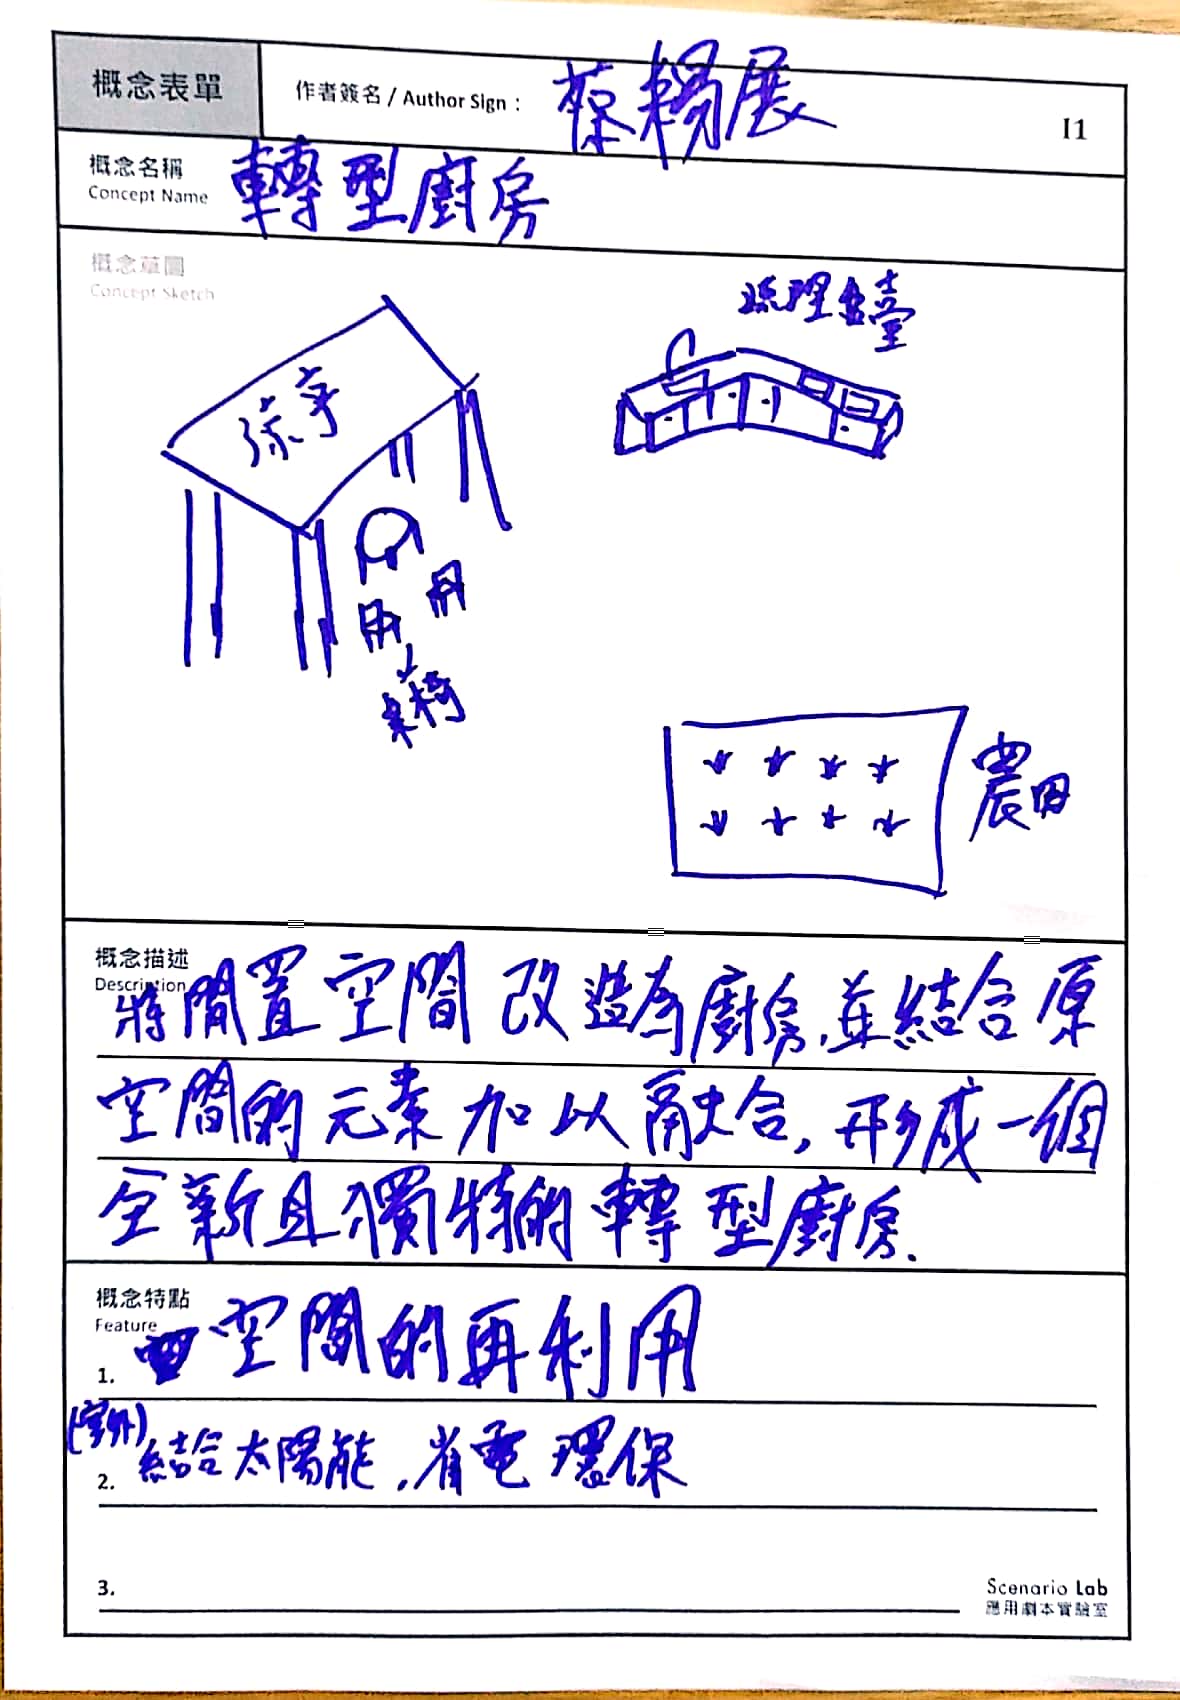 概念表單
作者簽名 / Author Sign：
I1
概念名稱
Concept Name
轉型廚房
概念草圖
Concept Sketch
涼亭
桌椅
農田
概念描述
Description
將閒置空間改造為廚房,並結合原
空間的元素加以融合,形成一個
全新且獨特的轉型廚房.
概念特點
Feature
1. 空間的再利用
(室外)
2. 結合太陽能,省電環保
3.
Scenario Lab
應用劇本實驗室